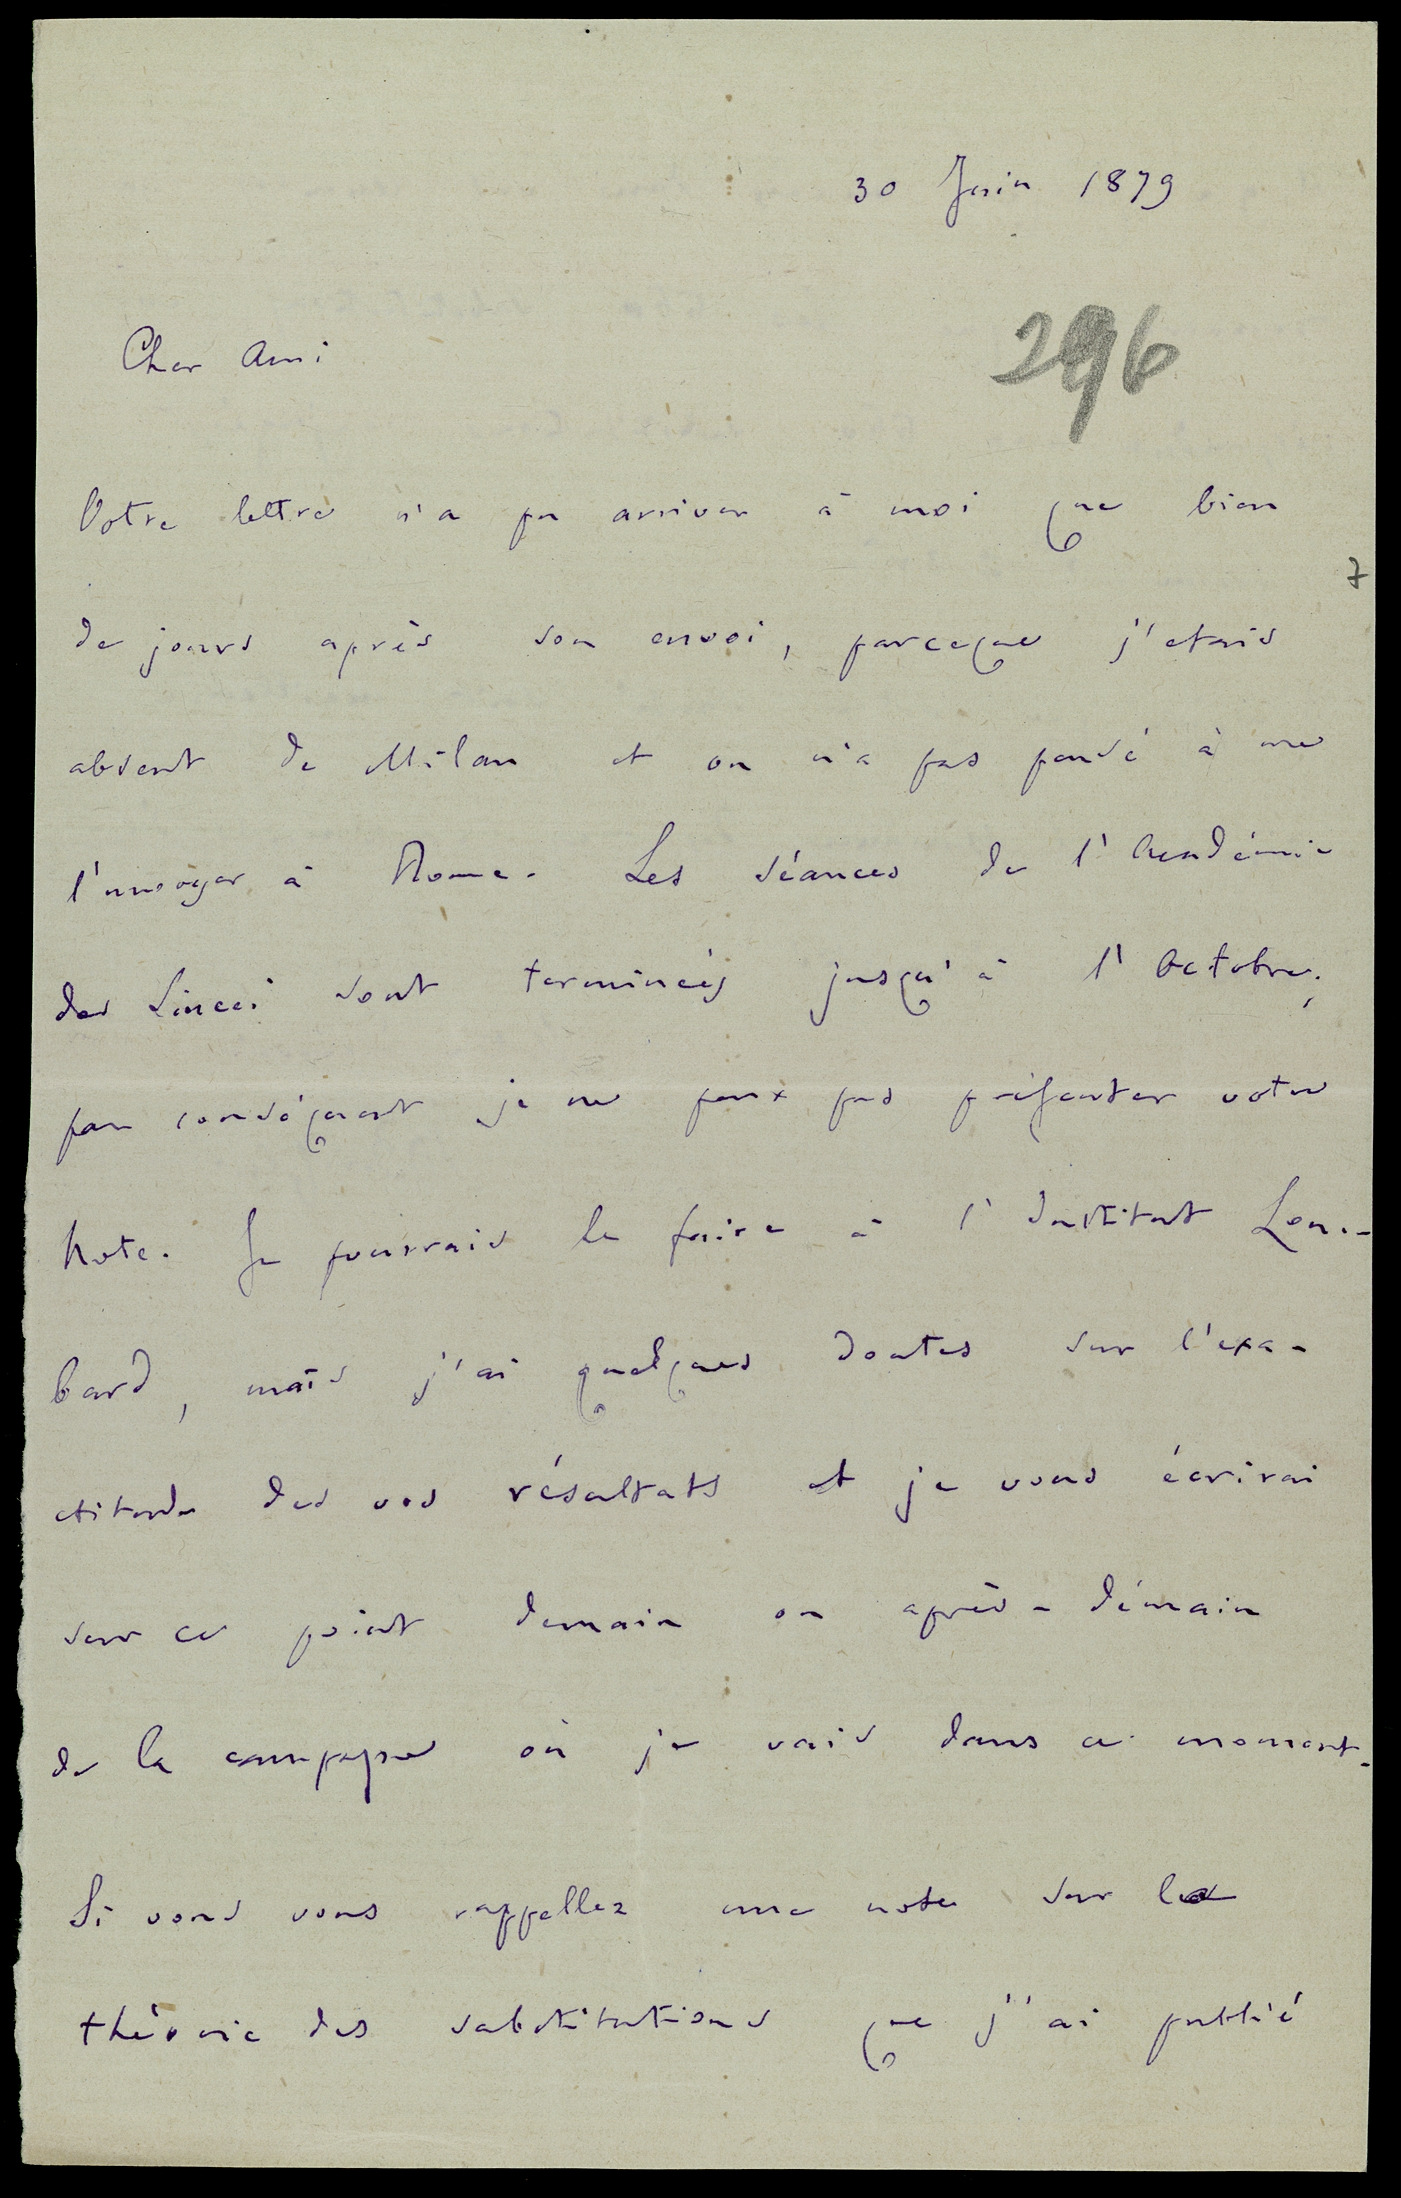 30 Juin 1879
296
Cher Ami
Votre lettre n'a pu arriver à moi que bien
7
de jours après son envoi, parceque j'etais
absent de Milan et on n'a pas pensé à me
l'envoyer à Rome. Les séances de l'Académie
des Lincei sont terminées jusqu'à l'Octobre;
par conséquent je ne peux pas présenter votre
Note. Je pourrais le faire à l'Institut Lom-
bard, mais j'ai quelques doutes sur l'exa-
ctitude des vos résultats et je vous écrirai
sur ce point demain ou après-démain
de la campagne où je vais dans ce moment.
Si vous vous rappellez une note sur la
théorie des substitutions que j'ai publié